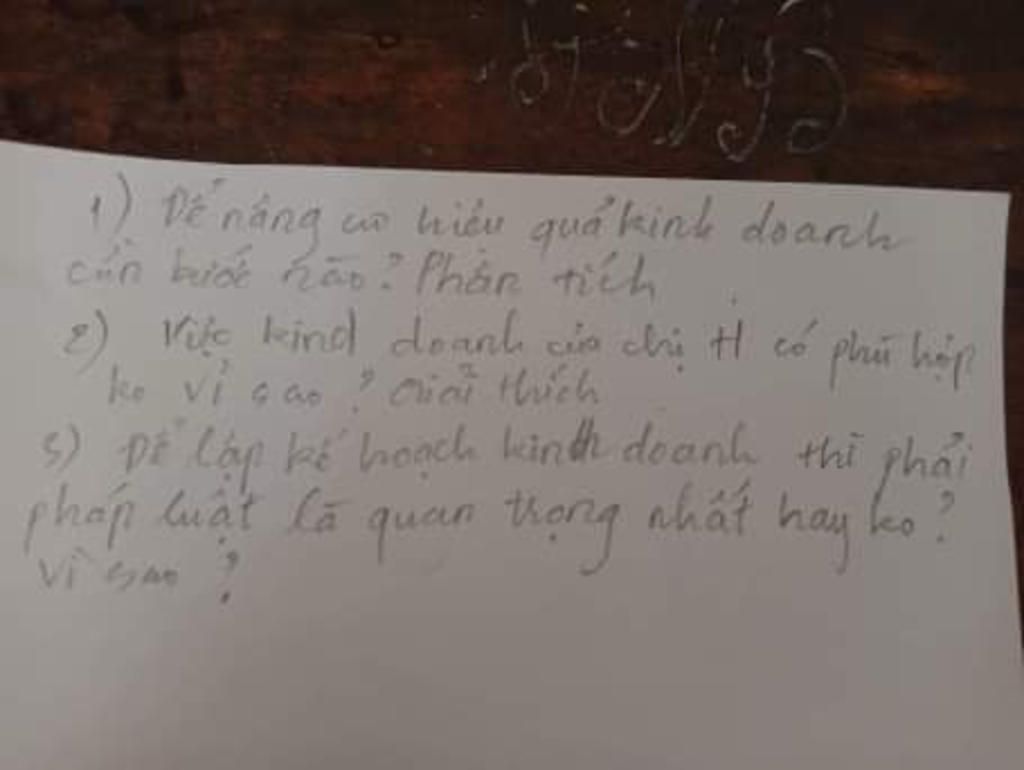 1) Để nâng cao hiệu quả kinh doanh
cần bước nào? Phân tích
2) Việc kind doanh của chị H có phù hợp
ko vì sao? Giải thích
3) Để lập kế hoạch kinh doanh thì phải
pháp luật là quan trọng nhất hay ko?
Vì sao?